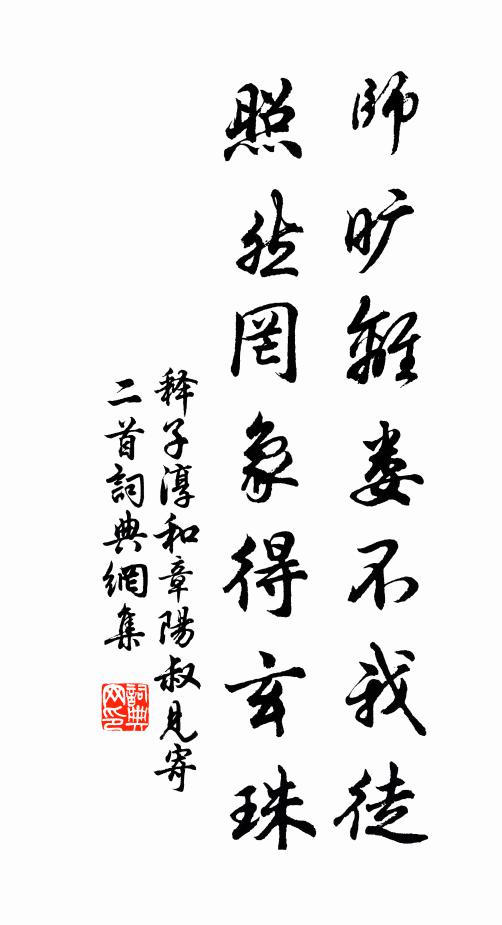 師旷離娄不我徒
照然罔象得玄珠
释子淳和章陽叔見寄
二首詞典網集
詞典网印